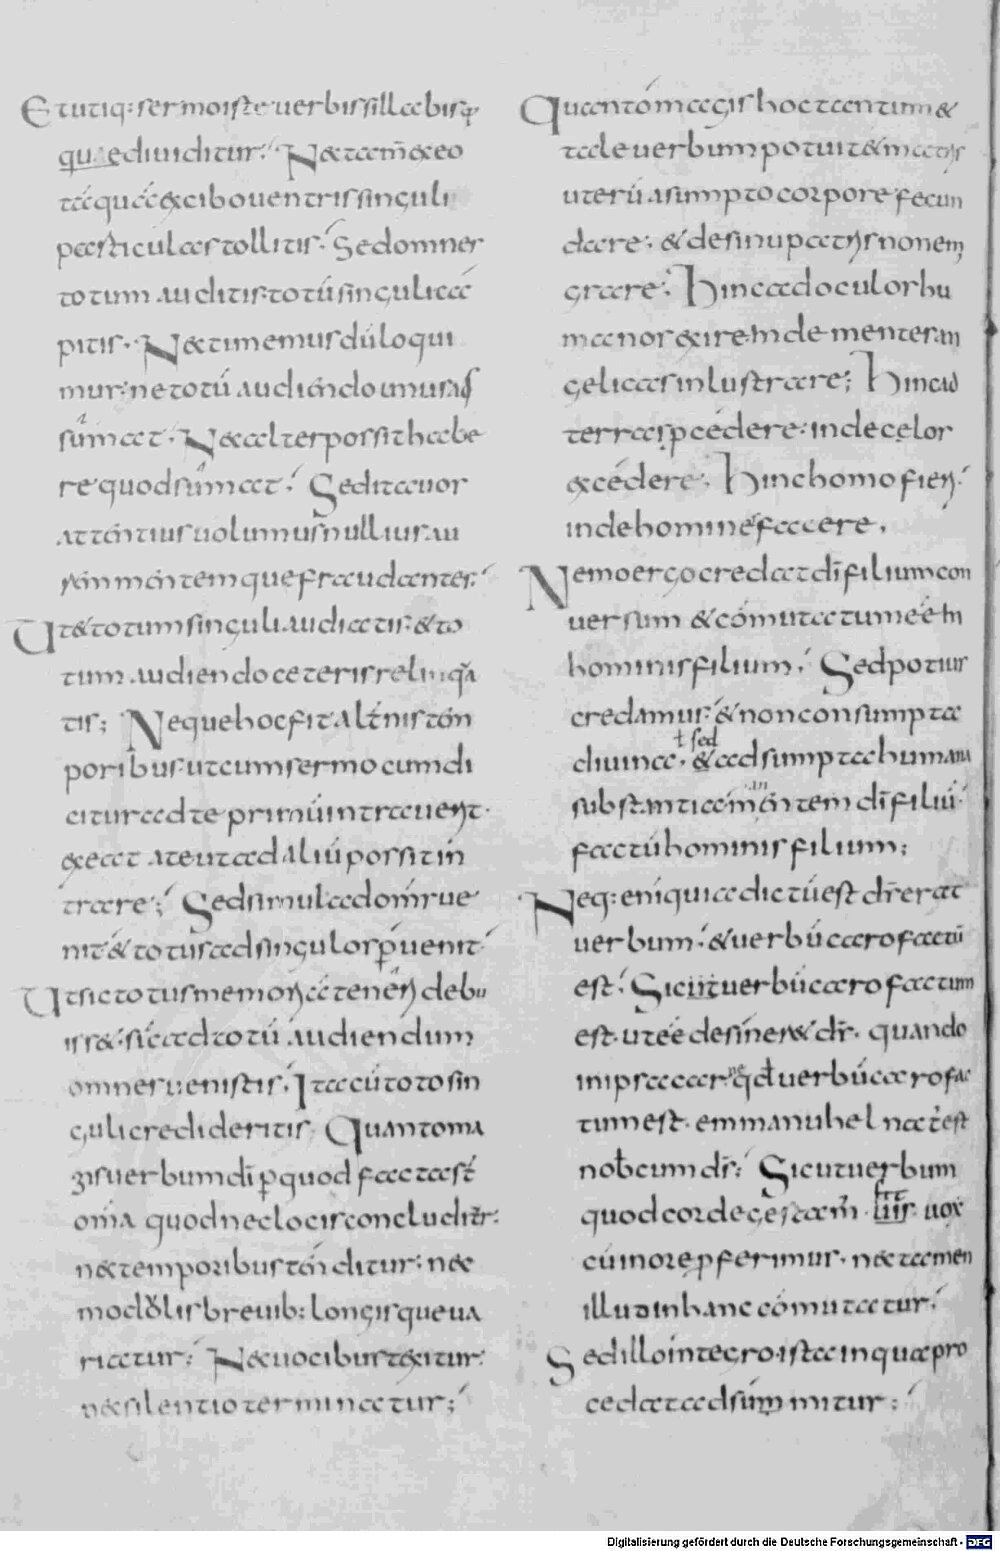 Et utiq: sermo iste verbis sillabisq;
quae dividitur; Nec tam̄ ex eo
tāquā ex cibo ventris singuli
particulas tollitis; Sed omnes
totum auditis totū singuli ca
pitis. Nec timemus dū loqui
mur ne totū audiendo unus as
sūmat. Nec alter possit habe
re quod sūmat; Sed ita vos
attentius volumus nullius au
rem mentemque fraudantes;
Ut et totum singuli audiatis et to
tum audiendo ceteris relinqua
tis; Neque hoc fit alt̄nis tem
poribus ut cum sermo cum di
citur ad te primū intraverit.
exeat a te ut ad aliū possit in
trare; Sed simul ad om̄s ve
nit et totus ad singulos p̄venit;
Ut si totus memoriā teneri debu
isset sicā ad totū audiendum
omnes venistis. Ita cū toto sin
guli credideritis; Quanto ma
gis verbum dī p quod facta sт̄
om̄a quod nec locis concluditr̄
nec temporibus tenditur. nec
modulis brevib: longisque va
riatur; Nec vocibus texitur.
nec silentio terminatur;
Quanto magis hoc tantum et
tale verbum potuit et matris
uterū asumpto corpore fecun
dare; et de sinu patris non em
grare; Hinc ad oculos hu
manos exire inde mentes an
gelicas inlustrare; Hinc ad
terras pcedere. inde celos
excedere; Hinc homo fieri;
inde homines facere.
Nemo ergo credat dī filium con
versum et comutatum eē in
hominis filium; Sed potius
credamus et non consumpta
ł sed
divina. et adsumpta humana
substantia manentem dī filiū
factū hominis filium;
Neq: enī quia dictū est ds̄ erat
verbum; et verbū caro factū
est; Sic ut verbū caro factum
est. ut eē desineret ds̄. quando
in ipsa carne qd verbū caro fac
tum est. emmanuhel nat̄ est
nobcum ds̄; Sicut verbum
quod corde gestam̄ fit vox
cū in ore pferimus. nec tamen
illud in hanc comutatur;
Sed illo integro ista in qua pro
cedat adsūmitur;
Digitalisierung gefördert durch die Deutsche Forschungsgemeinschaft - DFG